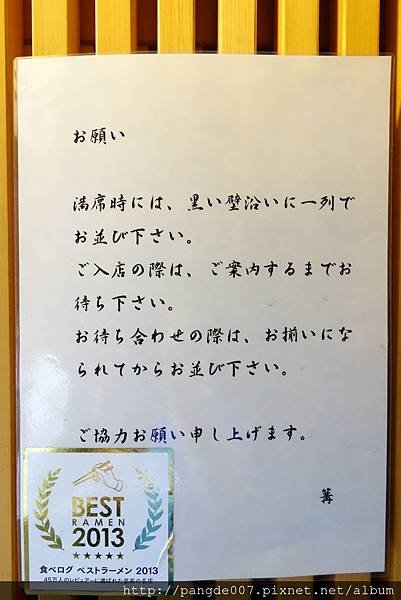 お願い
満席時には、黒い壁沿いに一列で
お並び下さい。
ご入店の際は、ご案内するまでお
待ち下さい。
お待ち合わせの際は、お揃いにな
られてからお並び下さい。
ご協力お願い申し上げます。
篝
BEST
RAMEN
2013
食べログ ベストラーメン 2013
45万人のレビュアーに選ばれた至高の名店
http://pangde007.pixnet.net/album